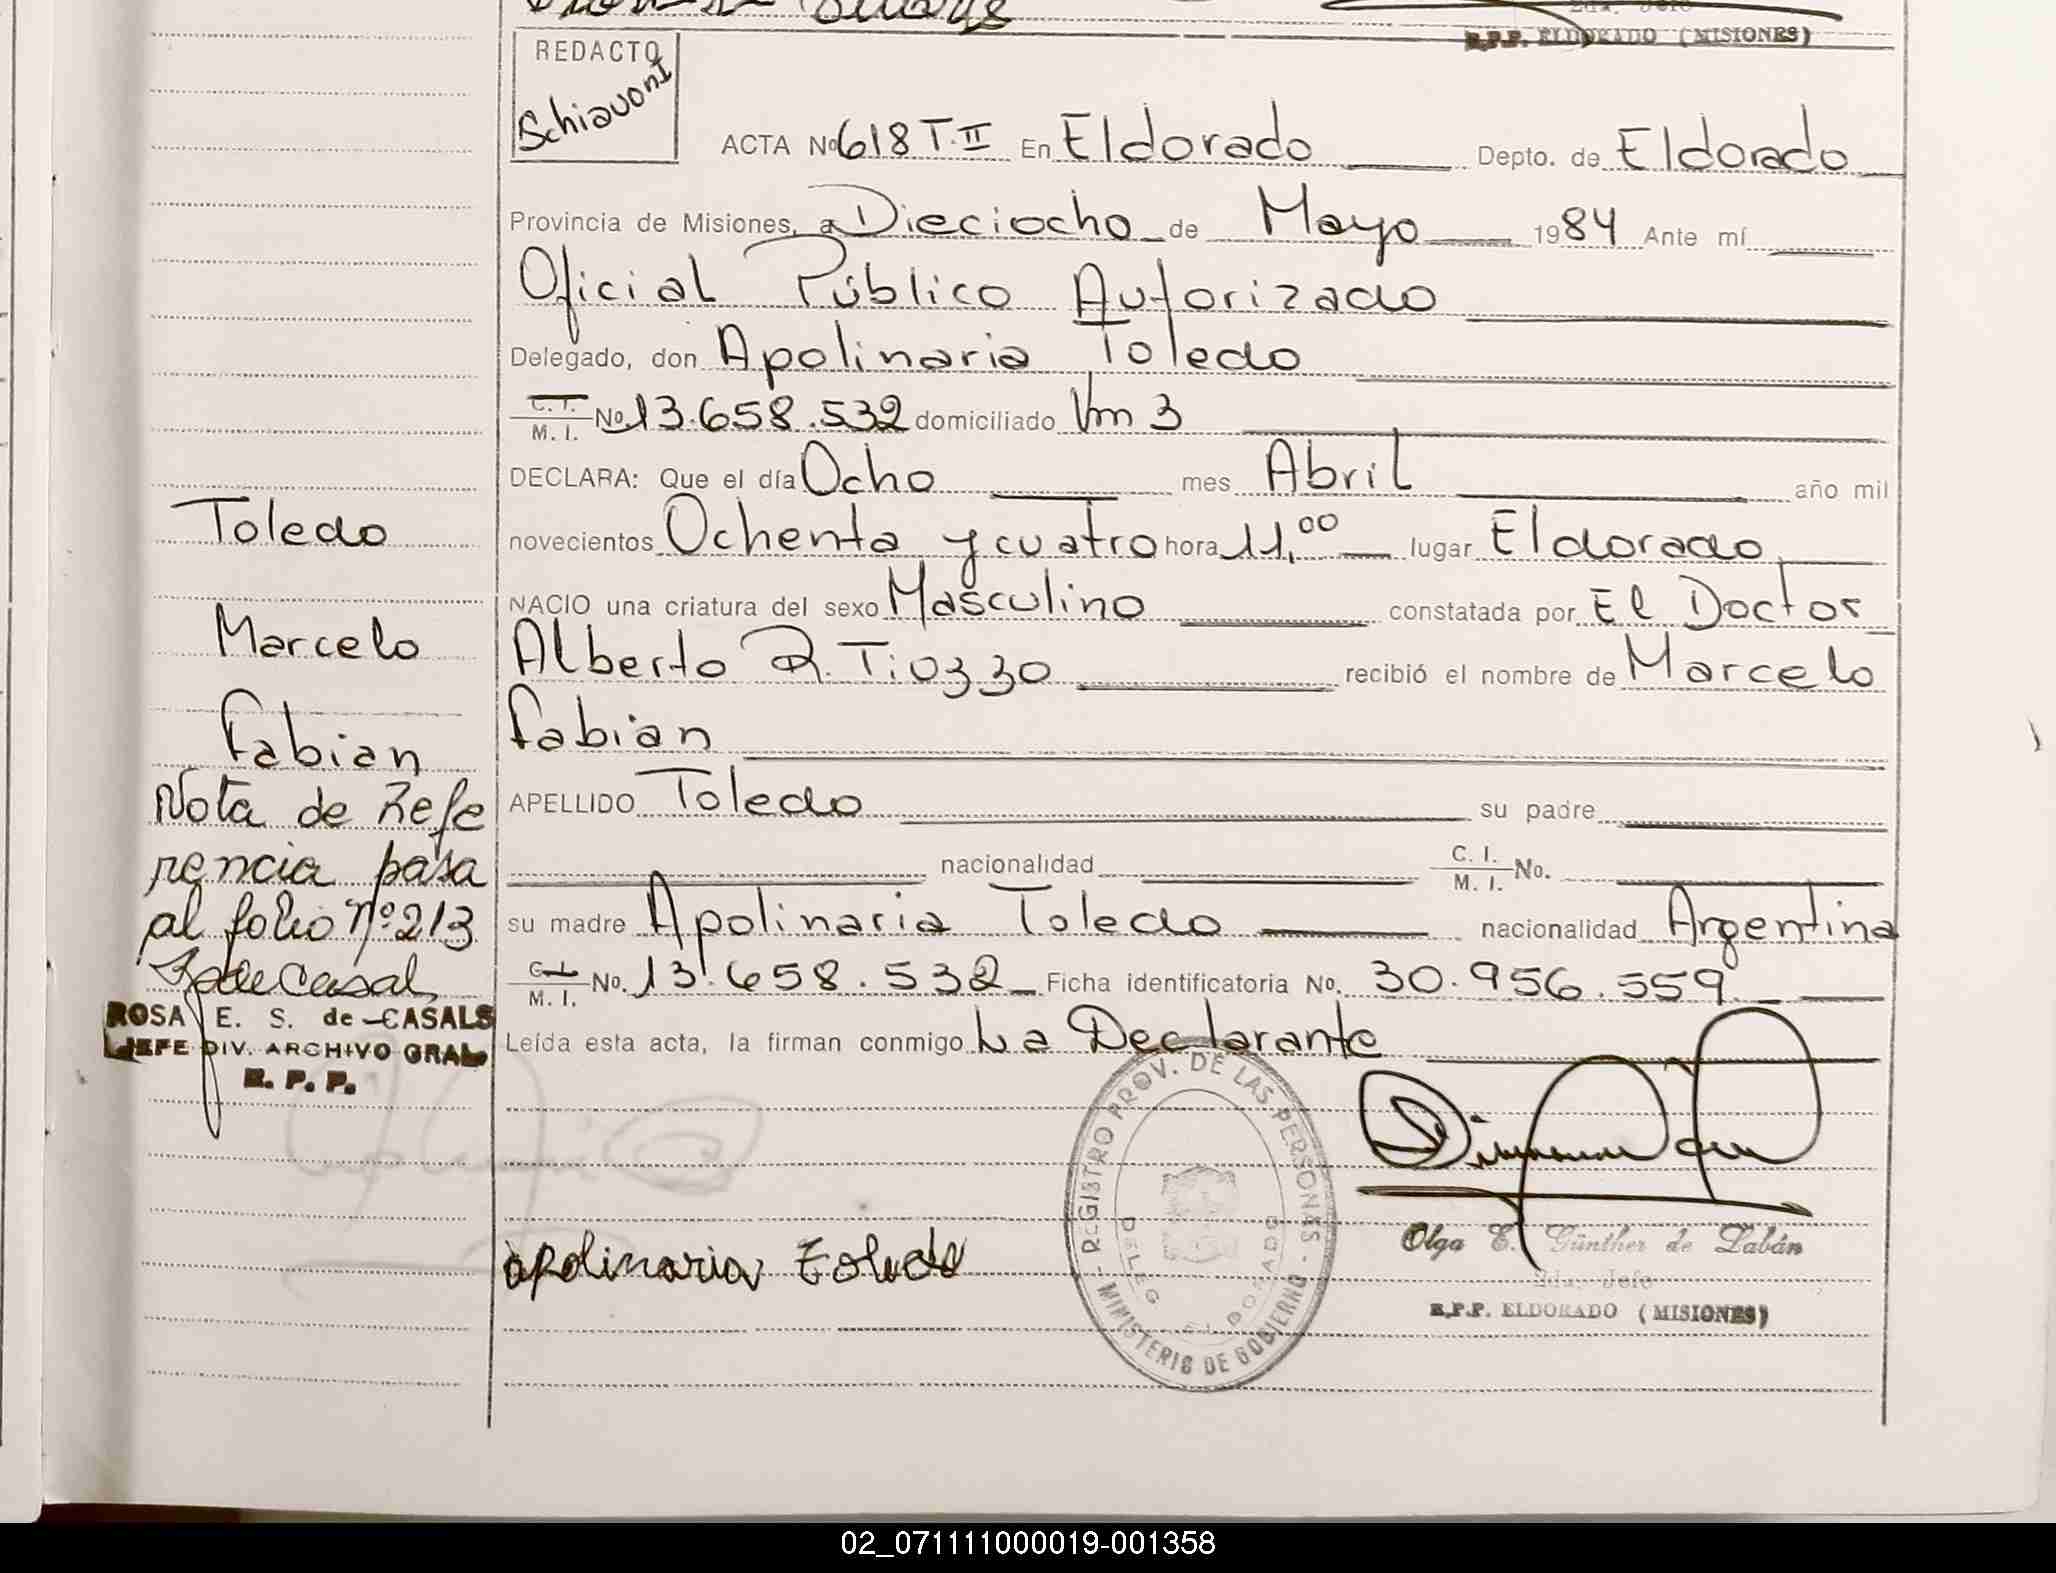 R.P.P. ELDORADO (MISIONES)
REDACTO
Schiavoni
ACTA Nº 618 T. II En Eldorado Depto. de Eldorado
Provincia de Misiones, a Dieciocho de Mayo 1984 Ante mí
Oficial Público Autorizado
Delegado, don Apolinaria Toledo
C. I. M. I. No. 13.658.532 domiciliado Km 3
DECLARA: Que el día Ocho mes Abril año mil
novecientos Ochenta y cuatro hora 11,00 lugar Eldorado
NACIO una criatura del sexo Masculino constatada por El Doctor
Alberto R. Tiozzo recibió el nombre de Marcelo
Fabian
APELLIDO Toledo su padre
nacionalidad C. I. M. I. No.
su madre Apolinaria Toledo nacionalidad Argentina
C. I. M. I. No. 13.658.532 Ficha identificatoria No. 30.956.559
Leída esta acta, la firman conmigo La Declarante
Toledo
Marcelo
Fabian
Nota de Refe
rencia pasa
al folio Nº 213
ROSA E. S. de CASALS
JEFE DIV. ARCHIVO GRAL
R. P. P.
apolinaria Toledo
REGISTRO PROV. DE LAS PERSONAS - MINISTERIO DE GOBIERNO -
DELEG. ELDORADO
Olga E. Günther de Zabán
2da. Jefe
R.P.P. ELDORADO (MISIONES)
02_071111000019-001358